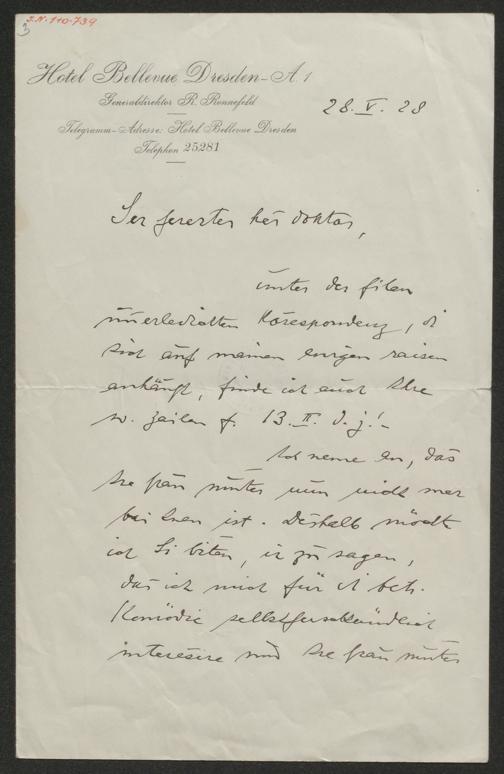 I.N. 110.739
3
Hotel Bellevue Dresden-A. 1
Generaldirektor R. Ronnefeld
Telegramm-Adresse: Hotel Bellevue Dresden
Telephon 25281
28. V. 28
Ser fererter her doktor,
unter der filen
unerledigten korespondenz, di
sich auf meinen ewigen raisen
anhäuft, finde ich auch Ihre
w. zailen f. 13. II. d. j.!-
Ich neme an, das
Ire frau mutter nun nicht mer
bai Inen ist. Deshalb möcht
ich Si biten, ir zu sagen,
das ich mich für di betr.
Komödie selbstferständlich
interesire und Ire frau mutter